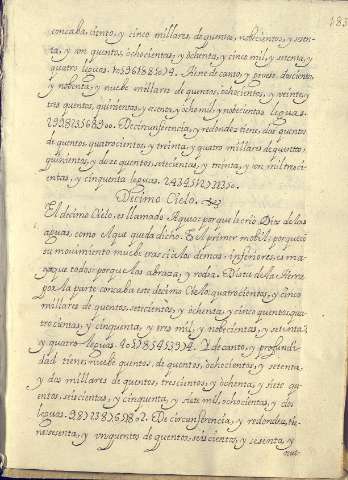 183
concaba, ciento, y cinco millares, de quentos, nobecientos, y sesen-
ta, y un quentos, ochocientos, y ochenta, y cinco mil, y setenta, y
quatro leguas. Tiene de canto, y grueso, docientos,
y nobenta, y nuebe millares de quentos, ochocientos, y veinte, y
tres quentos, quinientos, y sesenta, y ocho mil, y nobecientas leguas.
299823568900. De circunferencia, y redondez tiene, dos quentos
de quentos, quatrocientos, y treinta, y quatro millares de quentos,
quinientos, y doze quentos, setecientos, y treinta, y un mil, trecientas, y cinquenta leguas.
Decimo Cielo.
El decimo Cielo, es llamado Aqueo: porque le crio Dios de las
aguas, como a que queda dicho. Es el primer mobil, porque con
su movimiento muebe tras si a los demas inferiores, es ma-
yor que todos: porque los abraza, y rodea. Dista de la tierra
por la parte concaba este decimo Cielo: quatrocientos, y cinco
millares de quentos, setecientos, y ochenta, y cinco quentos, qua-
trocientos, y cinquenta, y tres mil, y nobecientas, y setenta
y quatro leguas. 405785453974. Y de canto, y profundi-
dad tiene, nuebe quentos, de quentos, ochocientos, y setenta,
y dos millares de quentos, trecientos, y ochenta, y siete quen-
tos, seiscientos, y cinquenta, y siete mil, ochocientas, y dos
leguas. De circunferencia, y redondez, tie-
ne sesenta, y un quentos de quentos, seiscientos, y sesenta, y